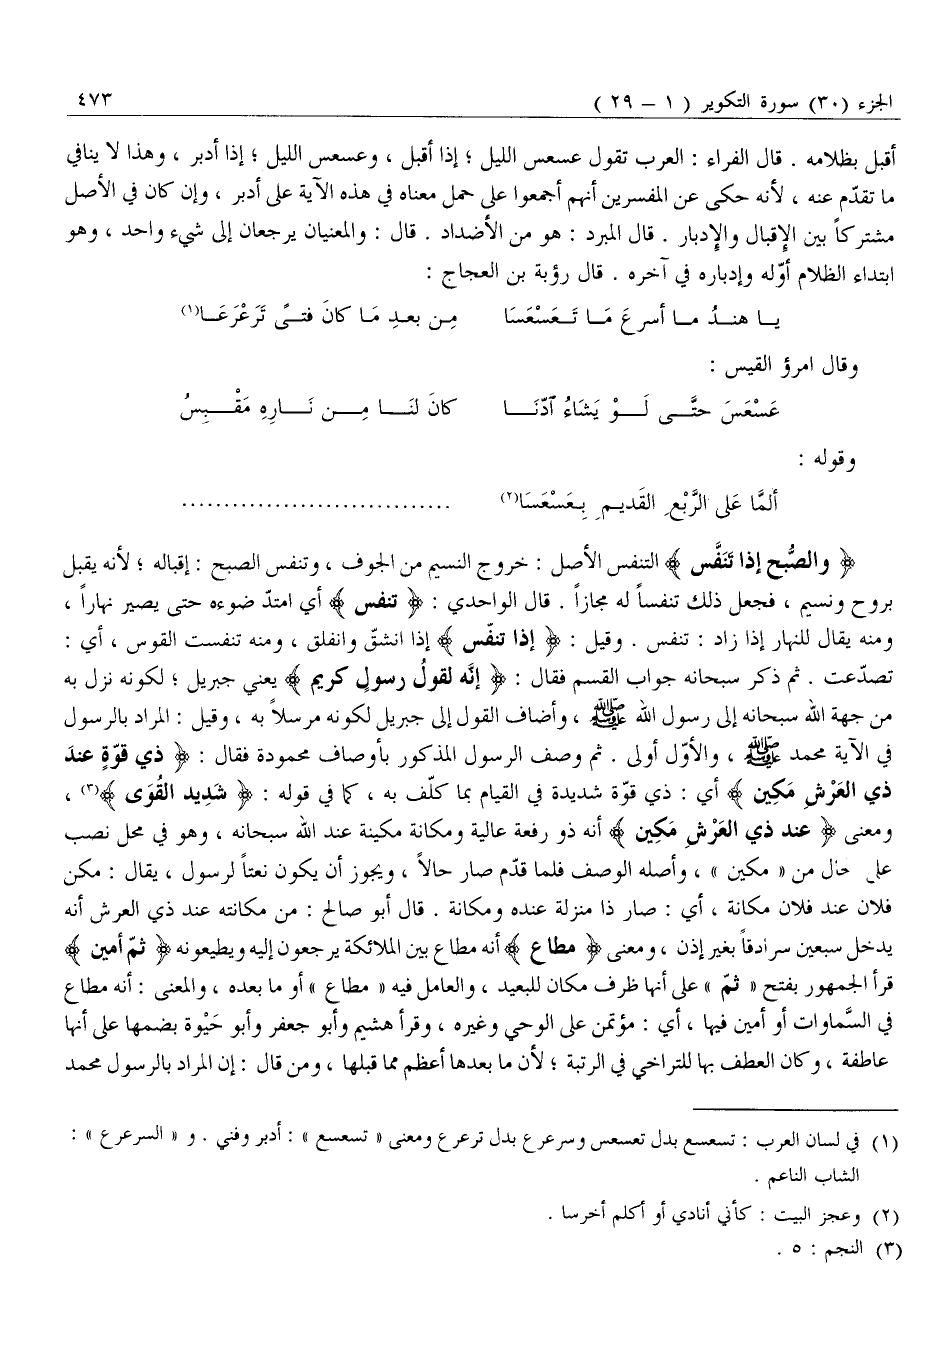 الجزء (٣٠) سورة التكوير ( ١ - ٢٩ ) ٤٧٣
أقبل بظلامه . قال الفراء : العرب تقول عسعس الليل ؛ إذا أقبل ، وعسعس الليل ؛ إذا أدبر ، وهذا لا ينافي
ما تقدّم عنه ، لأنه حكى عن المفسرين أنهم أجمعوا على حمل معناه في هذه الآية على أدبر ، وإن كان في الأصل
مشتركاً بين الإقبال والإدبار . قال المبرد : هو من الأضداد . قال : والمعنيان يرجعان إلى شيء واحد ، وهو
ابتداء الظلام أوّله وإدباره في آخره . قال رؤبة بن العجاج :
يـا هنـدُ مـا أسرعَ مَـا تَـعَسْعَسَا مِـن بعـدِ مَـا كانَ فتـىً تَرَعْرَعَـا(١)
وقال امرؤ القيس :
عَسْعَسَ حتَّـى لَـوْ يَشَاءُ آدّنَـا كانَ لنَـا مِـن نَـارِهِ مَقْـبِسُ
وقوله :
ألمَّا عَلى الرَّبْعِ القَديمِ بِعَسْعَسَا(٢) ................................
﴿ والصُّبح إذا تَنَفَّس ﴾ التنفس الأصل : خروج النسيم من الجوف ، وتنفس الصبح : إقباله ؛ لأنه يقبل
بروح ونسيم ، فجعل ذلك تنفساً له مجازاً . قال الواحدي : ﴿ تنفس ﴾ أي امتدّ ضوءه حتى يصير نهاراً ،
ومنه يقال للنهار إذا زاد : تنفس . وقيل : ﴿ إذا تنفّس ﴾ إذا انشقّ وانفلق ، ومنه تنفست القوس ، أي :
تصدّعت . ثم ذكر سبحانه جواب القسم فقال : ﴿ إنَّه لقولُ رسولٍ كريم ﴾ يعني جبريل ؛ لكونه نزل به
من جهة الله سبحانه إلى رسول الله ﷺ ، وأضاف القول إلى جبريل لكونه مرسلاً به ، وقيل : المراد بالرسول
في الآية محمد ﷺ ، والأوّل أولى . ثم وصف الرسول المذكور بأوصاف محمودة فقال : ﴿ ذي قوّةٍ عندَ
ذي العَرْشِ مَكِين ﴾ أي : ذي قوّة شديدة في القيام بما كلّف به ، كما في قوله : ﴿ شَدِيد القُوَى ﴾(٣) ،
ومعنى ﴿ عند ذي العَرْشِ مَكِين ﴾ أنه ذو رفعة عالية ومكانة مكينة عند الله سبحانه ، وهو في محل نصب
على حال من « مكين » ، وأصله الوصف فلما قدّم صار حالاً ، ويجوز أن يكون نعتاً لرسول ، يقال : مكن
فلان عند فلان مكانة ، أي : صار ذا منزلة عنده ومكانة . قال أبو صالح : من مكانته عند ذي العرش أنه
يدخل سبعين سرادقاً بغير إذن ، ومعنى ﴿ مطاع ﴾ أنه مطاع بين الملائكة يرجعون إليه ويطيعونه ﴿ ثمّ أمين ﴾
قرأ الجمهور بفتح « ثمّ » على أنها ظرف مكان للبعيد ، والعامل فيه « مطاع » أو ما بعده ، والمعنى : أنه مطاع
في السَّماوات أو أمين فيها ، أي : مؤتمن على الوحي وغيره ، وقرأ هشيم وأبو جعفر وأبو حَيْوة بضمها على أنها
عاطفة ، وكان العطف بها للتراخي في الرتبة ؛ لأن ما بعدها أعظم مما قبلها ، ومن قال : إن المراد بالرسول محمد
(١) في لسان العرب : تسعسع بدل تعسعس وسرعرع بدل ترعرع ومعنى « تسعسع » : أدبر وفني . و « السرعرع » :
الشاب الناعم .
(٢) وعجز البيت : كأني أنادي أو أكلم أخرسا .
(٣) النجم : ٥ .